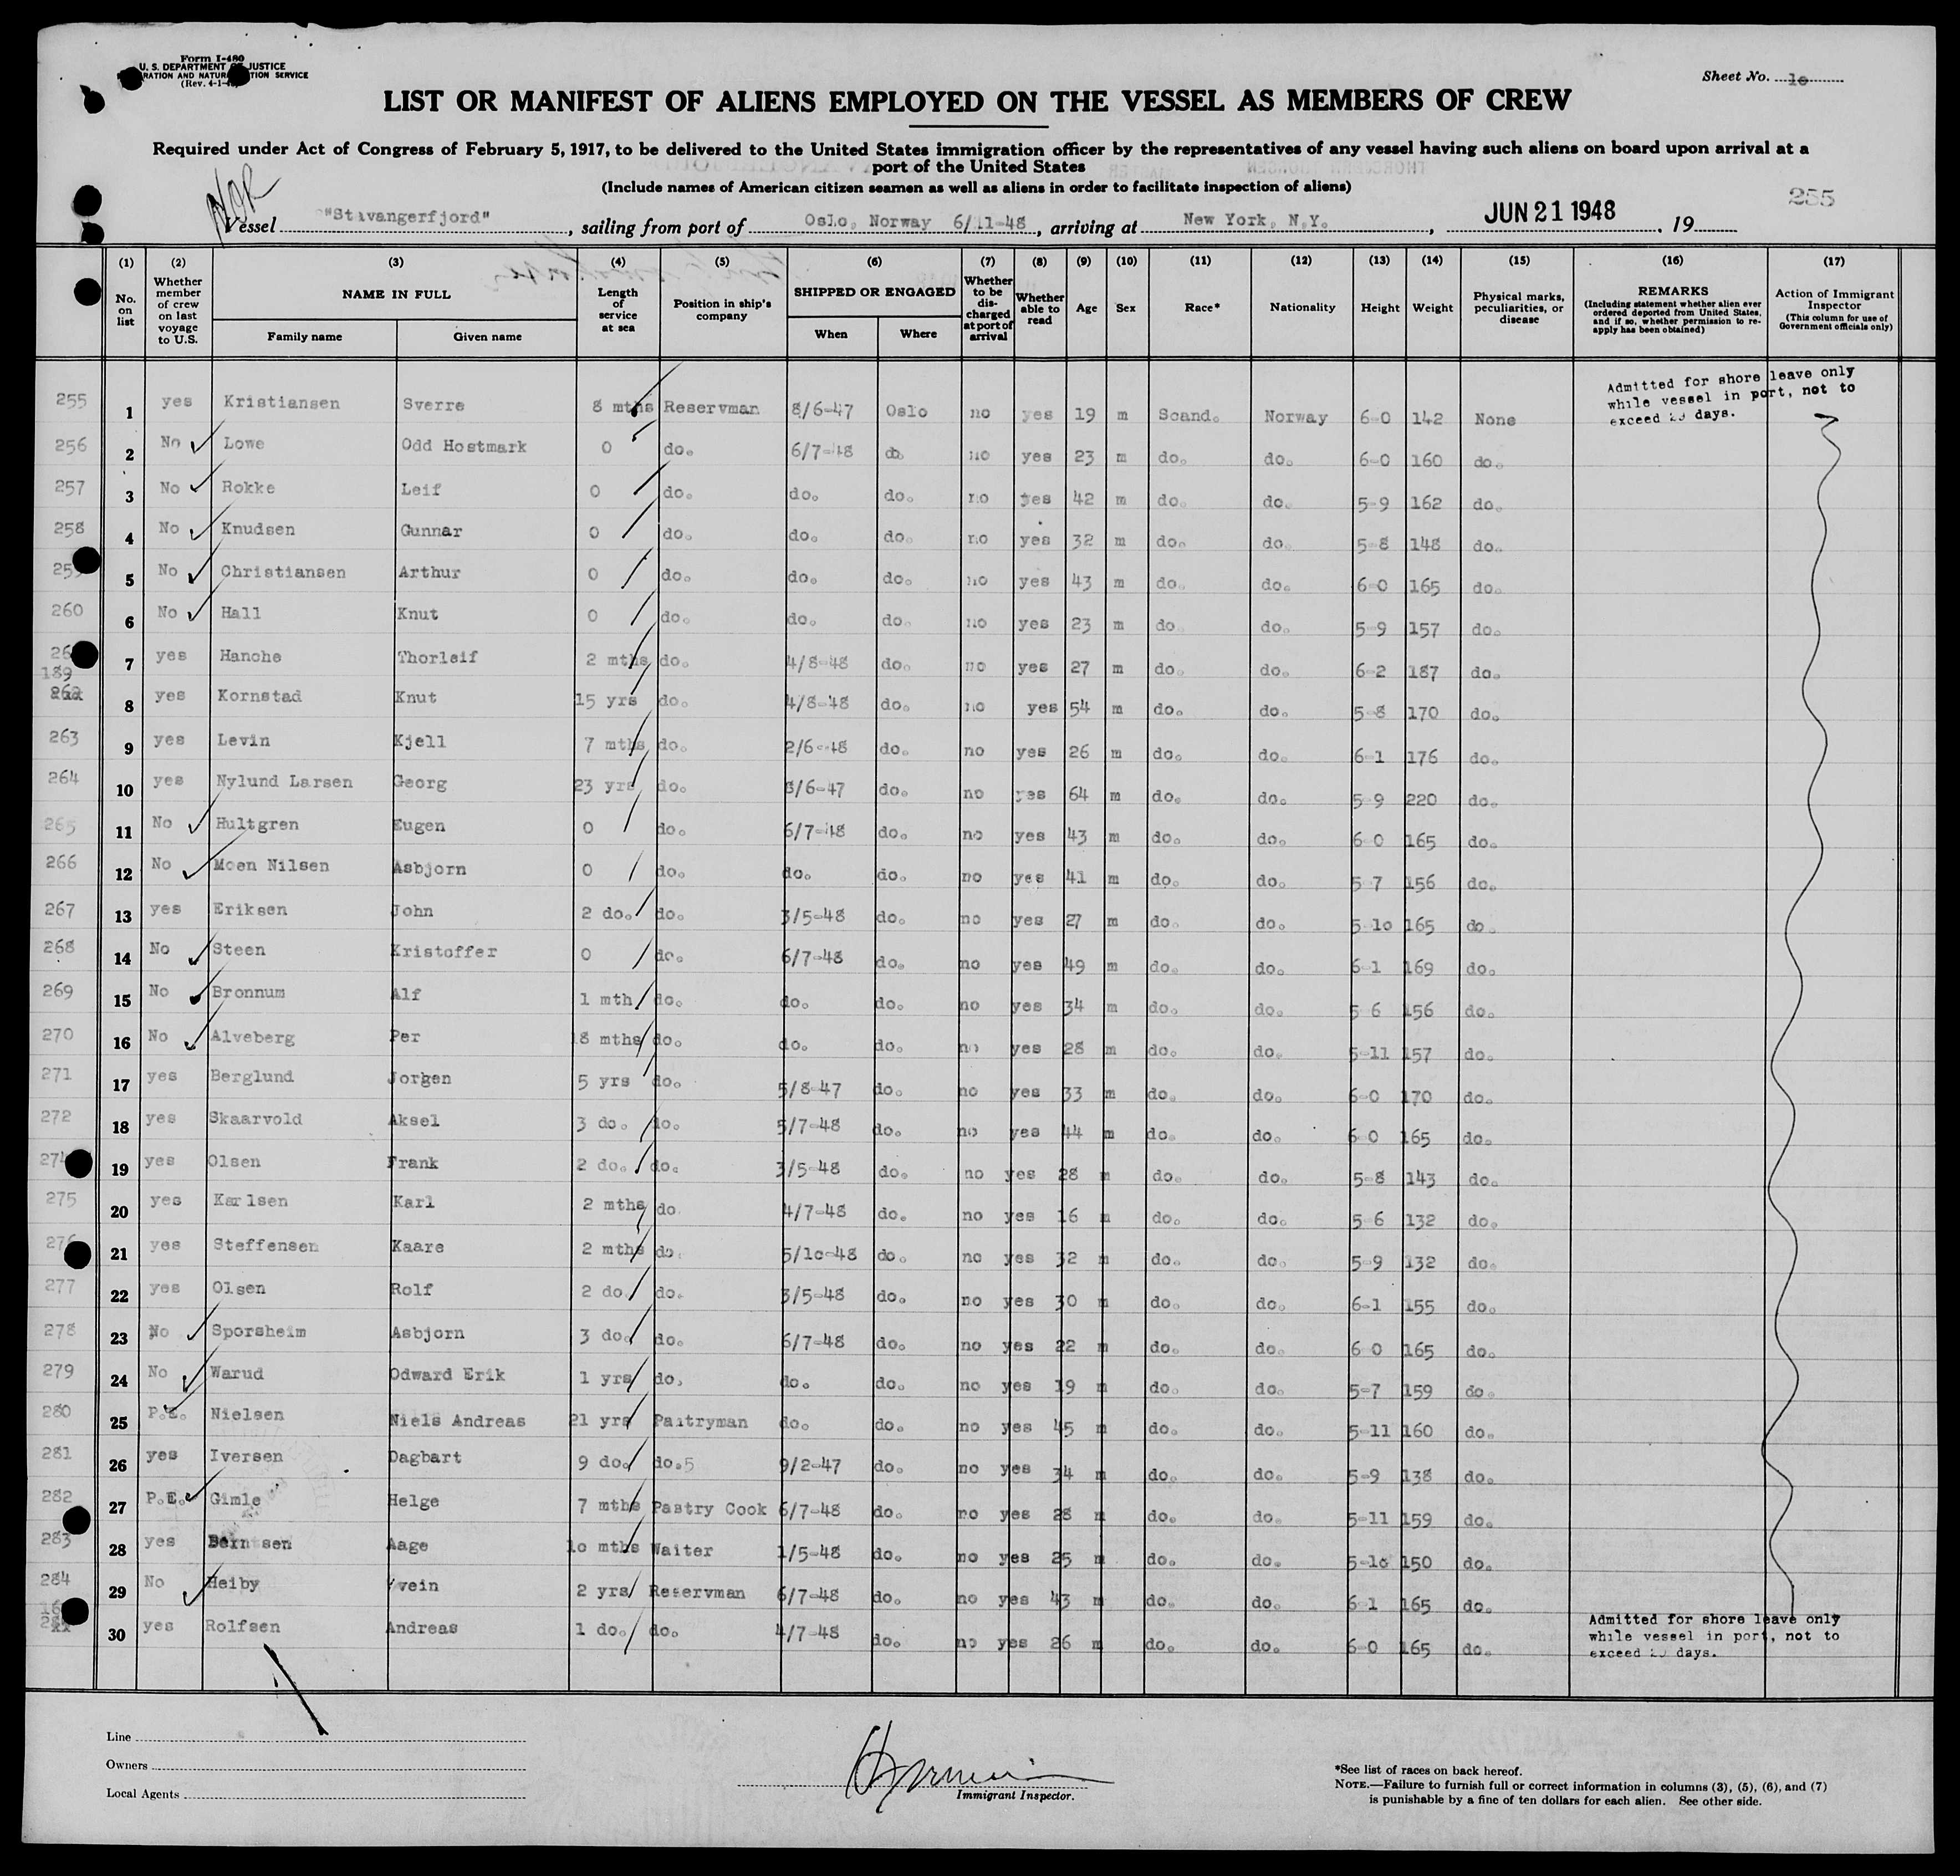 Form I-480
U. S. DEPARTMENT OF JUSTICE
IMMIGRATION AND NATURALIZATION SERVICE
(Rev. 4-1-
Sheet No. 10
LIST OR MANIFEST OF ALIENS EMPLOYED ON THE VESSEL AS MEMBERS OF CREW
Required under Act of Congress of February 5, 1917, to be delivered to the United States immigration officer by the representatives of any vessel having such aliens on board upon arrival at a
port of the United States
(Include names of American citizen seamen as well as aliens in order to facilitate inspection of aliens)
NOR
255
Vessel "Stavangerfjord", sailing from port of Oslo, Norway 6/11-48, arriving at New York, N.Y., JUN 21 1948, 19
(1) (2) (3) (4) (5) (6) (7) (8) (9) (10) (11) (12) (13) (14) (15) (16) (17)
No. on list
Whether member of crew on last voyage to U.S.
NAME IN FULL
Family name Given name
Length of service at sea
Position in ship's company
SHIPPED OR ENGAGED
When Where
Whether to be discharged at port of arrival
Whether able to read
Age Sex Race* Nationality Height Weight
Physical marks, peculiarities, or disease
REMARKS
(Including statement whether alien ever ordered deported from United States, and if so, whether permission to reapply has been obtained)
Action of Immigrant Inspector
(This column for use of Government officials only)
Admitted for shore leave only
while vessel in port, not to
exceed 29 days.
255 1 yes Kristiansen Sverre 8 mths Reservman 8/6-47 Oslo no yes 19 m Scand. Norway 6-0 142 None
256 2 No Lowe Odd Hostmark 0 do. 6/7-48 do. no yes 23 m do. do. 6-0 160 do.
257 3 No Rokke Leif 0 do. do. do. no yes 42 m do. do. 5-9 162 do.
258 4 No Knudsen Gunnar 0 do. do. do. no yes 32 m do. do. 5-8 148 do.
259 5 No Christiansen Arthur 0 do. do. do. no yes 43 m do. do. 6-0 165 do.
260 6 No Hall Knut 0 do. do. do. no yes 23 m do. do. 5-9 157 do.
189 7 yes Hanche Thorleif 2 mths do. 4/8-48 do. no yes 27 m do. do. 6-2 187 do.
262 8 yes Kornstad Knut 15 yrs do. 4/8-48 do. no yes 54 m do. do. 5-8 170 do.
263 9 yes Levin Kjell 7 mths do. 2/6-48 do. no yes 26 m do. do. 6-1 176 do.
264 10 yes Nylund Larsen Georg 23 yrs do. 8/6-47 do. no yes 64 m do. do. 5-9 220 do.
265 11 No Hultgren Eugen 0 do. 6/7-48 do. no yes 43 m do. do. 6-0 165 do.
266 12 No Moen Nilsen Asbjorn 0 do. do. do. no yes 41 m do. do. 5-7 156 do.
267 13 yes Eriksen John 2 do. do. 3/5-48 do. no yes 27 m do. do. 5-10 165 do.
268 14 No Steen Kristoffer 0 do. 6/7-48 do. no yes 49 m do. do. 6-1 169 do.
269 15 No Bronnum Alf 1 mth. do. do. do. no yes 34 m do. do. 5-6 156 do.
270 16 No Alveberg Per 18 mths do. do. do. no yes 28 m do. do. 5-11 157 do.
271 17 yes Berglund Jorgen 5 yrs do. 5/8-47 do. no yes 33 m do. do. 6-0 170 do.
272 18 yes Skaarvold Aksel 3 do. do. 5/7-48 do. no yes 44 m do. do. 6-0 165 do.
274 19 yes Olsen Frank 2 do. do. 3/5-48 do. no yes 28 m do. do. 5-8 143 do.
275 20 yes Karlsen Karl 2 mths do. 4/7-48 do. no yes 16 m do. do. 5-6 132 do.
276 21 yes Steffensen Kaare 2 mths do. 5/10-48 do. no yes 32 m do. do. 5-9 132 do.
277 22 yes Olsen Rolf 2 do. do. 3/5-48 do. no yes 30 m do. do. 6-1 155 do.
278 23 No Sporsheim Asbjorn 3 do. do. 6/7-48 do. no yes 22 m do. do. 6-0 165 do.
279 24 No Warud Odward Erik 1 yrs do. do. do. no yes 19 m do. do. 5-7 159 do.
280 25 P.E. Nielsen Niels Andreas 21 yrs Pantryman do. do. no yes 45 m do. do. 5-11 160 do.
281 26 yes Iversen Dagbart 9 do. do. 9/2-47 do. no yes 34 m do. do. 5-9 138 do.
282 27 P.E. Gimle Helge 7 mths Pastry Cook 6/7-48 do. no yes 28 m do. do. 5-11 159 do.
283 28 yes Berntsen Aage 10 mths Waiter 1/5-48 do. no yes 25 m do. do. 5-10 150 do.
284 29 No Heiby Svein 2 yrs Reservman 6/7-48 do. no yes 43 m do. do. 6-1 165 do.
30 yes Rolfsen Andreas 1 do. do. 4/7-48 do. no yes 26 m do. do. 6-0 165 do.
Admitted for shore leave only
while vessel in port, not to
exceed 29 days.
Line
Owners
Local Agents
Immigrant Inspector.
*See list of races on back hereof.
NOTE.—Failure to furnish full or correct information in columns (3), (5), (6), and (7)
is punishable by a fine of ten dollars for each alien. See other side.